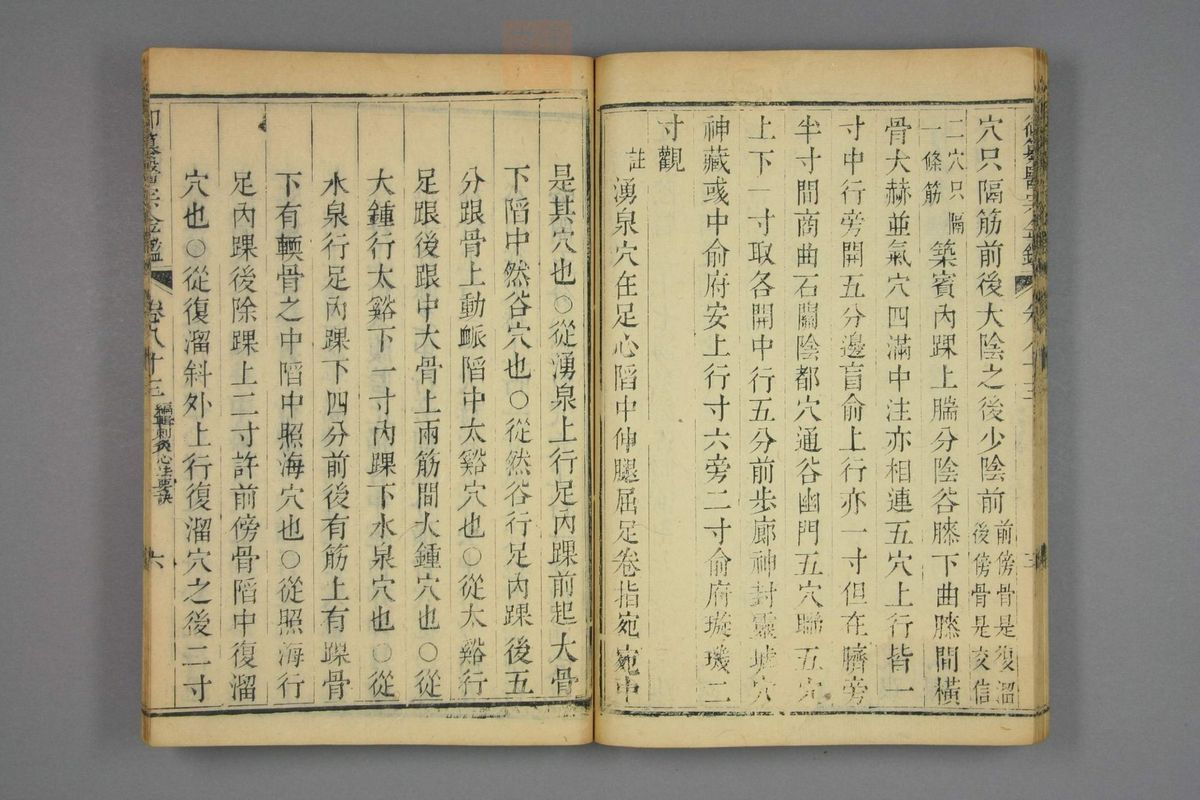 穴只隔筋前後太陰之後少陰前前傍骨是復溜後傍骨是交信
二穴只隔一條筋築賓內踝上腨分陰谷膝下曲膝間橫
骨大赫並氣穴四滿中注亦相連五穴上行皆一
寸中行旁開五分邊肓俞上行亦一寸但在臍旁
半寸間商曲石關陰都穴通谷幽門五穴聯五穴
上下一寸取各開中行五分前步廊神封靈墟穴
神藏彧中俞府安上行寸六旁二寸俞府璇璣二
寸觀
註湧泉穴在足心陷中伸腿屈足卷指宛宛中
是其穴也○從湧泉上行足內踝前起大骨
下陷中然谷穴也○從然谷行足內踝後五
分跟骨上動脈陷中太谿穴也○從太谿行
足跟後跟中大骨上兩筋間大鍾穴也○從
大鍾行太谿下一寸內踝下水泉穴也○從
水泉行足內踝下四分前後有筋上有踝骨
下有輭骨之中陷中照海穴也○從照海行
足內踝後除踝上二寸許前傍骨陷中復溜
穴也○從復溜斜外上行復溜穴之後二寸
御纂醫宗金鑑 卷八十三 編輯刺灸心法要訣 六